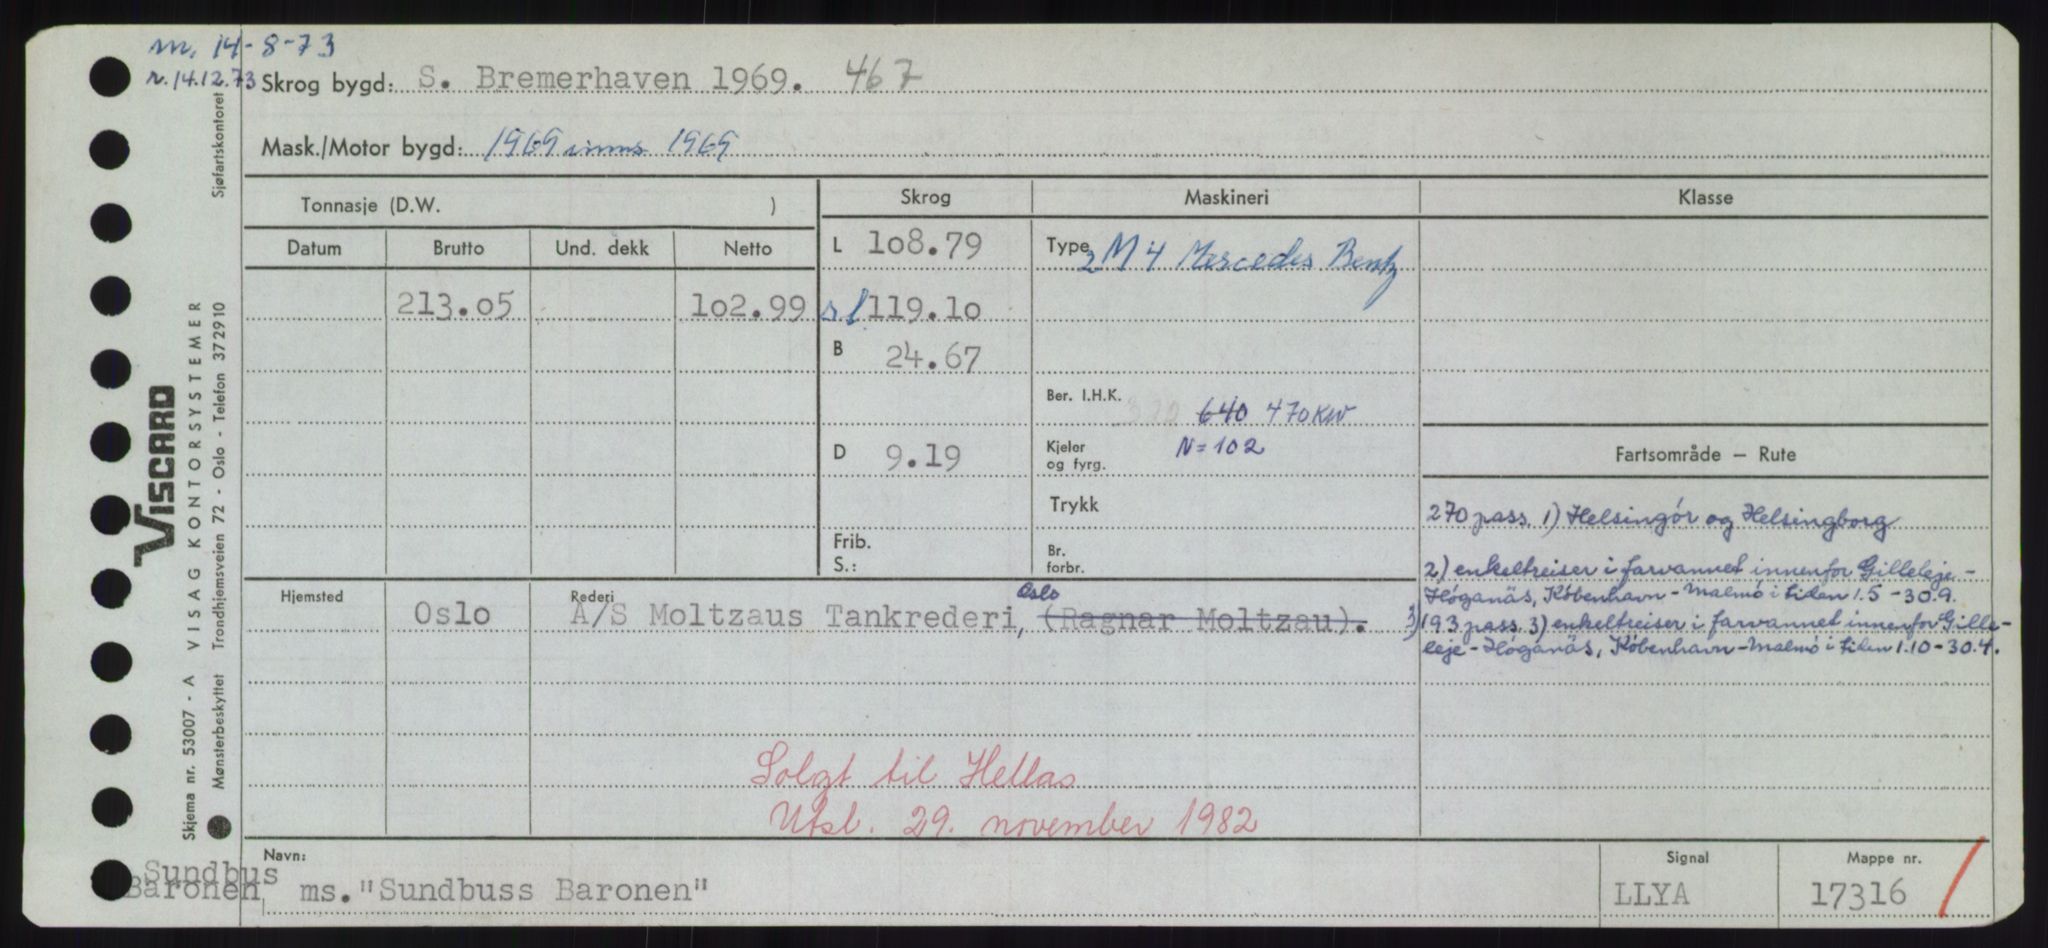 m. 14-8-73
r. 14.12.73
Skrog bygd: S. Bremerhaven 1969. 467
Mask./Motor bygd: 1969 inns 1969
Tonnasje (D.W. )
Skrog
Maskineri
Klasse
Datum
Brutto
Und. dekk
Netto
L 108.79
Type 2 M 4 Mercedes Bentz
213.05
102.99
s l 119.10
B 24.67
Ber. I.H.K. 640 470 KW
D 9.19
Kjeler og fyrg. N=102
Fartsområde — Rute
Trykk
270 pass. 1) Helsingør og Helsingborg
Frib.
S.:
Br. forbr.
2) enkeltreiser i farvannet innenfor Gilleleje -
Høganäs, København - Malmö i tiden 1.5 - 30.9.
Hjemsted Oslo
Rederi A/S Moltzaus Tankrederi, Oslo (Ragnar Moltzau).
3) 193 pass. 3) enkeltreiser i farvannet innenfor Gille-
leje - Høganäs, København - Malmö i tiden 1.10 - 30.4.
Solgt til Hellas
Utsl. 29. november 1982
Navn: ms. "Sundbuss Baronen"
Signal LLYA
Mappe nr. 17316
Sundbus
Baronen
VISCARD
VISAG KONTORSYSTEMER
Skjema nr. 53007 - A
Mønsterbeskyttet Trondhjemsveien 72 - Oslo - Telefon 372910
Sjøfartskontoret